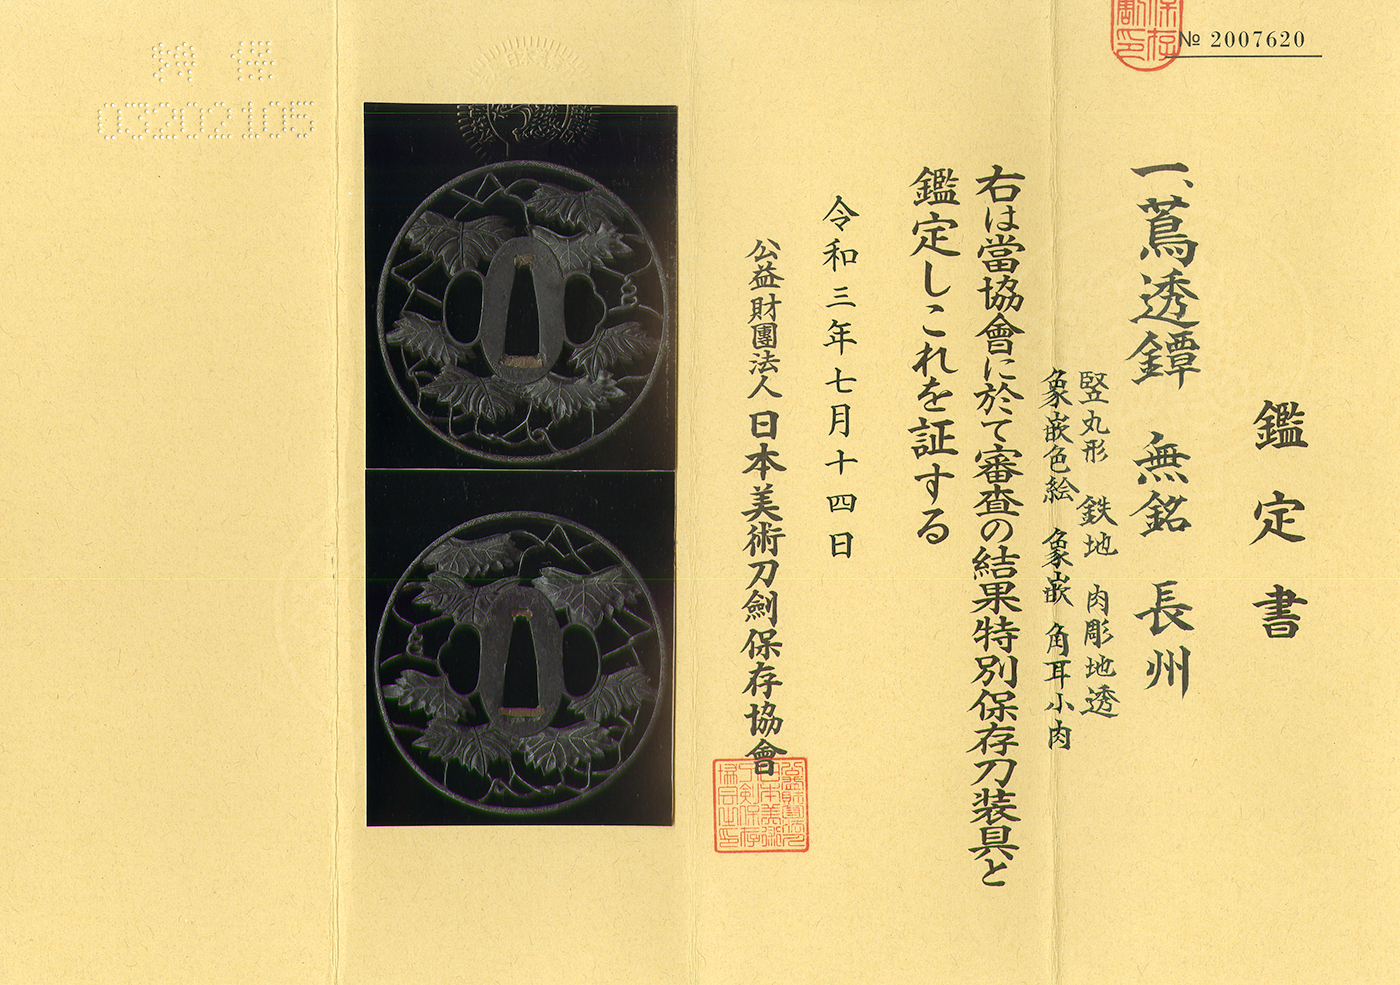 № 2007620
鑑定書
一、蔦透鐔 無銘 長州
竪丸形 鉄地 肉彫地透
象嵌色絵 象嵌 角耳小肉
右は當協會に於て審査の結果特別保存刀装具と
鑑定しこれを証する
令和三年七月十四日
公益財團法人 日本美術刀劍保存協會
特保
03202105